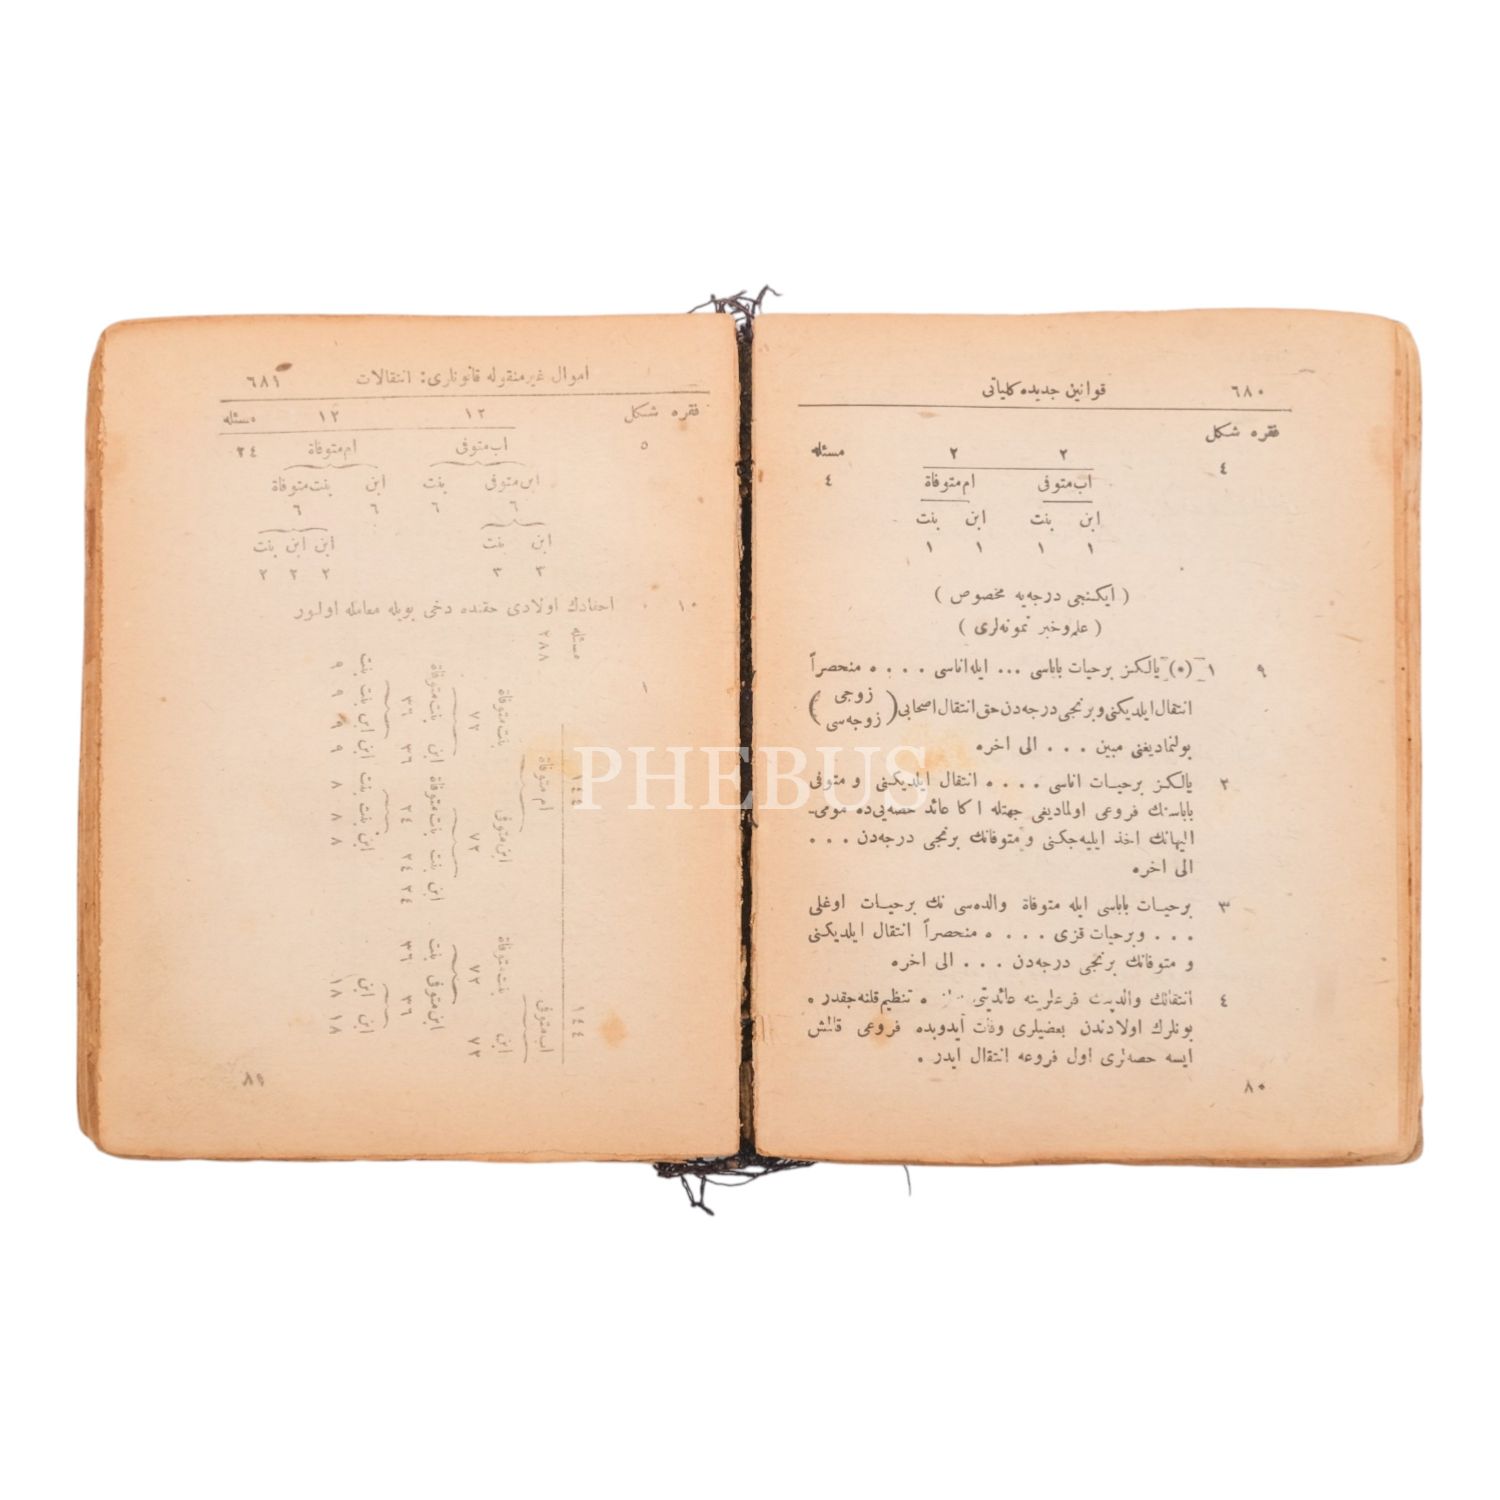 ٦٨٠ قوانین جدیده کلیاتی
فقره شکل
٤
٢ ٢ مسئله
اب متوفی ام متوفاة ٤
ابن بنت ابن بنت
١ ١ ١ ١
( ایکنجی درجه‌یه مخصوص )
( علم و خبر نمونه‌لری )
٩ ١ (*) یالکز برحیات باباسی ... ایله اناسی . . . ه منحصراً
انتقال ایلدیکنی و برنجی درجه‌دن حق انتقال اصحابی ( زوجی زوجه‌سی )
بولنمادیغنی مبین . . . الی اخره
٢ یالکز برحیات اناسی . . . ه انتقال ایلدیکنی و متوفی
باباسنك فروعی اولمادیغی جهتله اکا عائد حصه‌یی‌ده مومی‌ـ
الیهانك اخذ ایلیه‌جکنی و متوفانك برنجی درجه‌دن . . .
الی اخره
٣ برحیات باباسی ایله متوفاة والده‌سی نك برحیات اوغلی
. . . وبرحیات قزی . . . ه منحصراً انتقال ایلدیکنی
و متوفانك برنجی درجه‌دن . . . الی اخره
٤ انتقالك والدینك فرعلرینه عائدیتی ه تنظیم قلنه‌جقدر ه
بونلرك اولادندن بعضیلری وفات ایدوبده فروعی قالمش
ایسه حصه‌لری اول فروعه انتقال ایدر .
٨٠
اموال غیر منقوله قانونلری: انتقالات ٦٨١
فقره شکل ١٢ ١٢ مسئله
٥ اب متوفی ام متوفاة ٢٤
ابن متوفی بنت ابن بنت متوفاة
٦ ٦ ٦ ٦
ابن بنت ابن ابن بنت
٣ ٣ ٢ ٢ ٢
١٠ احفادك اولادی حقنده دخی بویله معامله اولنور
مسئله
٢٨٨
١
١٤٤ ١٤٤
ام متوفاة اب متوفی
بنت متوفاة ابن متوفی بنت متوفاة ابن
٧٢ ٧٢ ٧٢ ٧٢
بنت متوفاة ابن بنت متوفاة بنت ابن بنت ابن متوفی
٣٦ ٣٦ ٢٤ ٢٤ ٢٤ ٣٦ ٣٦
بنت بنت ابن ابن بنت بنت ابن ابن ابن
٩ ٩ ٩ ٩ ٨ ٨ ٨ ١٨ ١٨
٨٩
PHEBUS